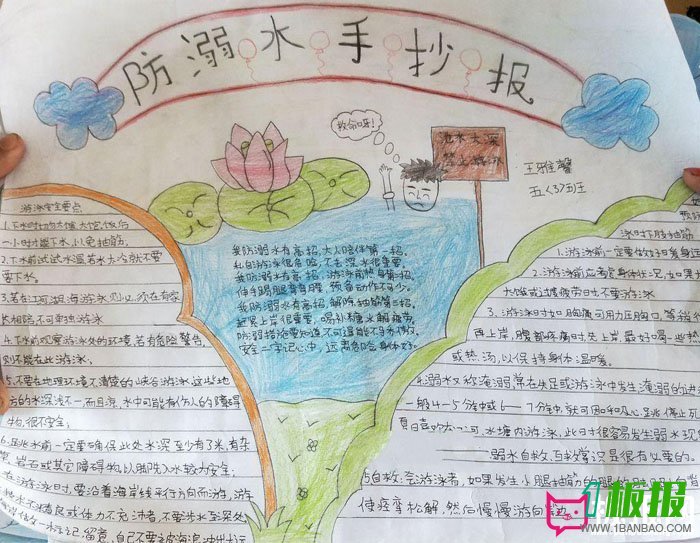 防溺水手抄报
救命呀!
池水太深
禁止游泳
王雅馨
五<3>班
游泳安全要点
1.下水时切勿太饿、太饱。饭后
一小时才能下水,以免抽筋;
2.下水前试试水温,若水太冷,就不要
下水。
3.若在江、河、湖、海游泳,则必须有
相陪,不可单独游泳
4.下水前观察游泳处的环境,若有危险警告,
则不能在此游泳。
5.不要在地理环境不清楚的峡谷游泳,这些地
方的水深浅不一,而且凉,水中可能有伤人的障碍
物,很不安全;
6.跳水前一定要确保此处水深至少有3米,有杂
岩石或其它障碍物,以脚先入水较为安全;
游泳时,要沿着海岸线平行方向而游,游
或体力不充沛者,不要涉水至深处
留意,自己不要被海浪冲出
我防溺水有高招,大人陪伴第一招,
私自游泳很危险,不去深水很重要。
我防溺水有高招,游泳前热身第二招,
伸手踢腿弯弯腰,预备动作不可少。
我防溺水有高招,解除抽筋第三招,
赶紧上岸很重要,喝补糖水解疲劳,
防溺措施要知道,不可逞能不骄傲,
安全二字记心中,远离危险身体好。
泳时下肢抽筋
1.游泳前一定要做好暖身运
2.游泳前应考虑身体状况,如果
大饿或过度疲劳时,不要游泳
3.游泳时如胸痛,可用力压胸口,等稍
再上岸,腹部疼痛时,应上岸,最好喝一些热
或热汤,以保持身体温暖。
4.溺水又称淹溺,常在失足或游泳中发生,淹溺的
一般4—5分钟或6—7分钟,就可因呼吸心跳停止
水塘内游泳,此时很容易发生溺水现
溺水自救、互救常识是很有必要的。
自救:会游泳者,如果发生小腿抽筋
使痉挛松解,然后慢慢游向岸边。
1板报
WWW.1BANBAO.COM